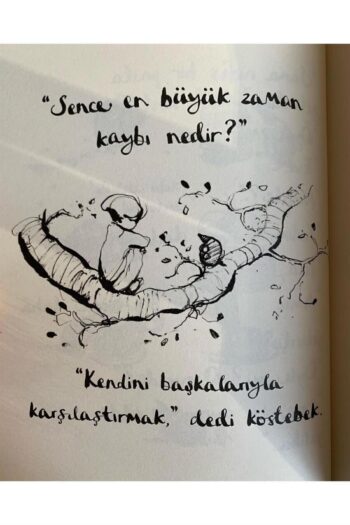 "Sence en büyük zaman
kaybı nedir?"
"Kendini başkalarıyla
karşılaştırmak," dedi köstebek.